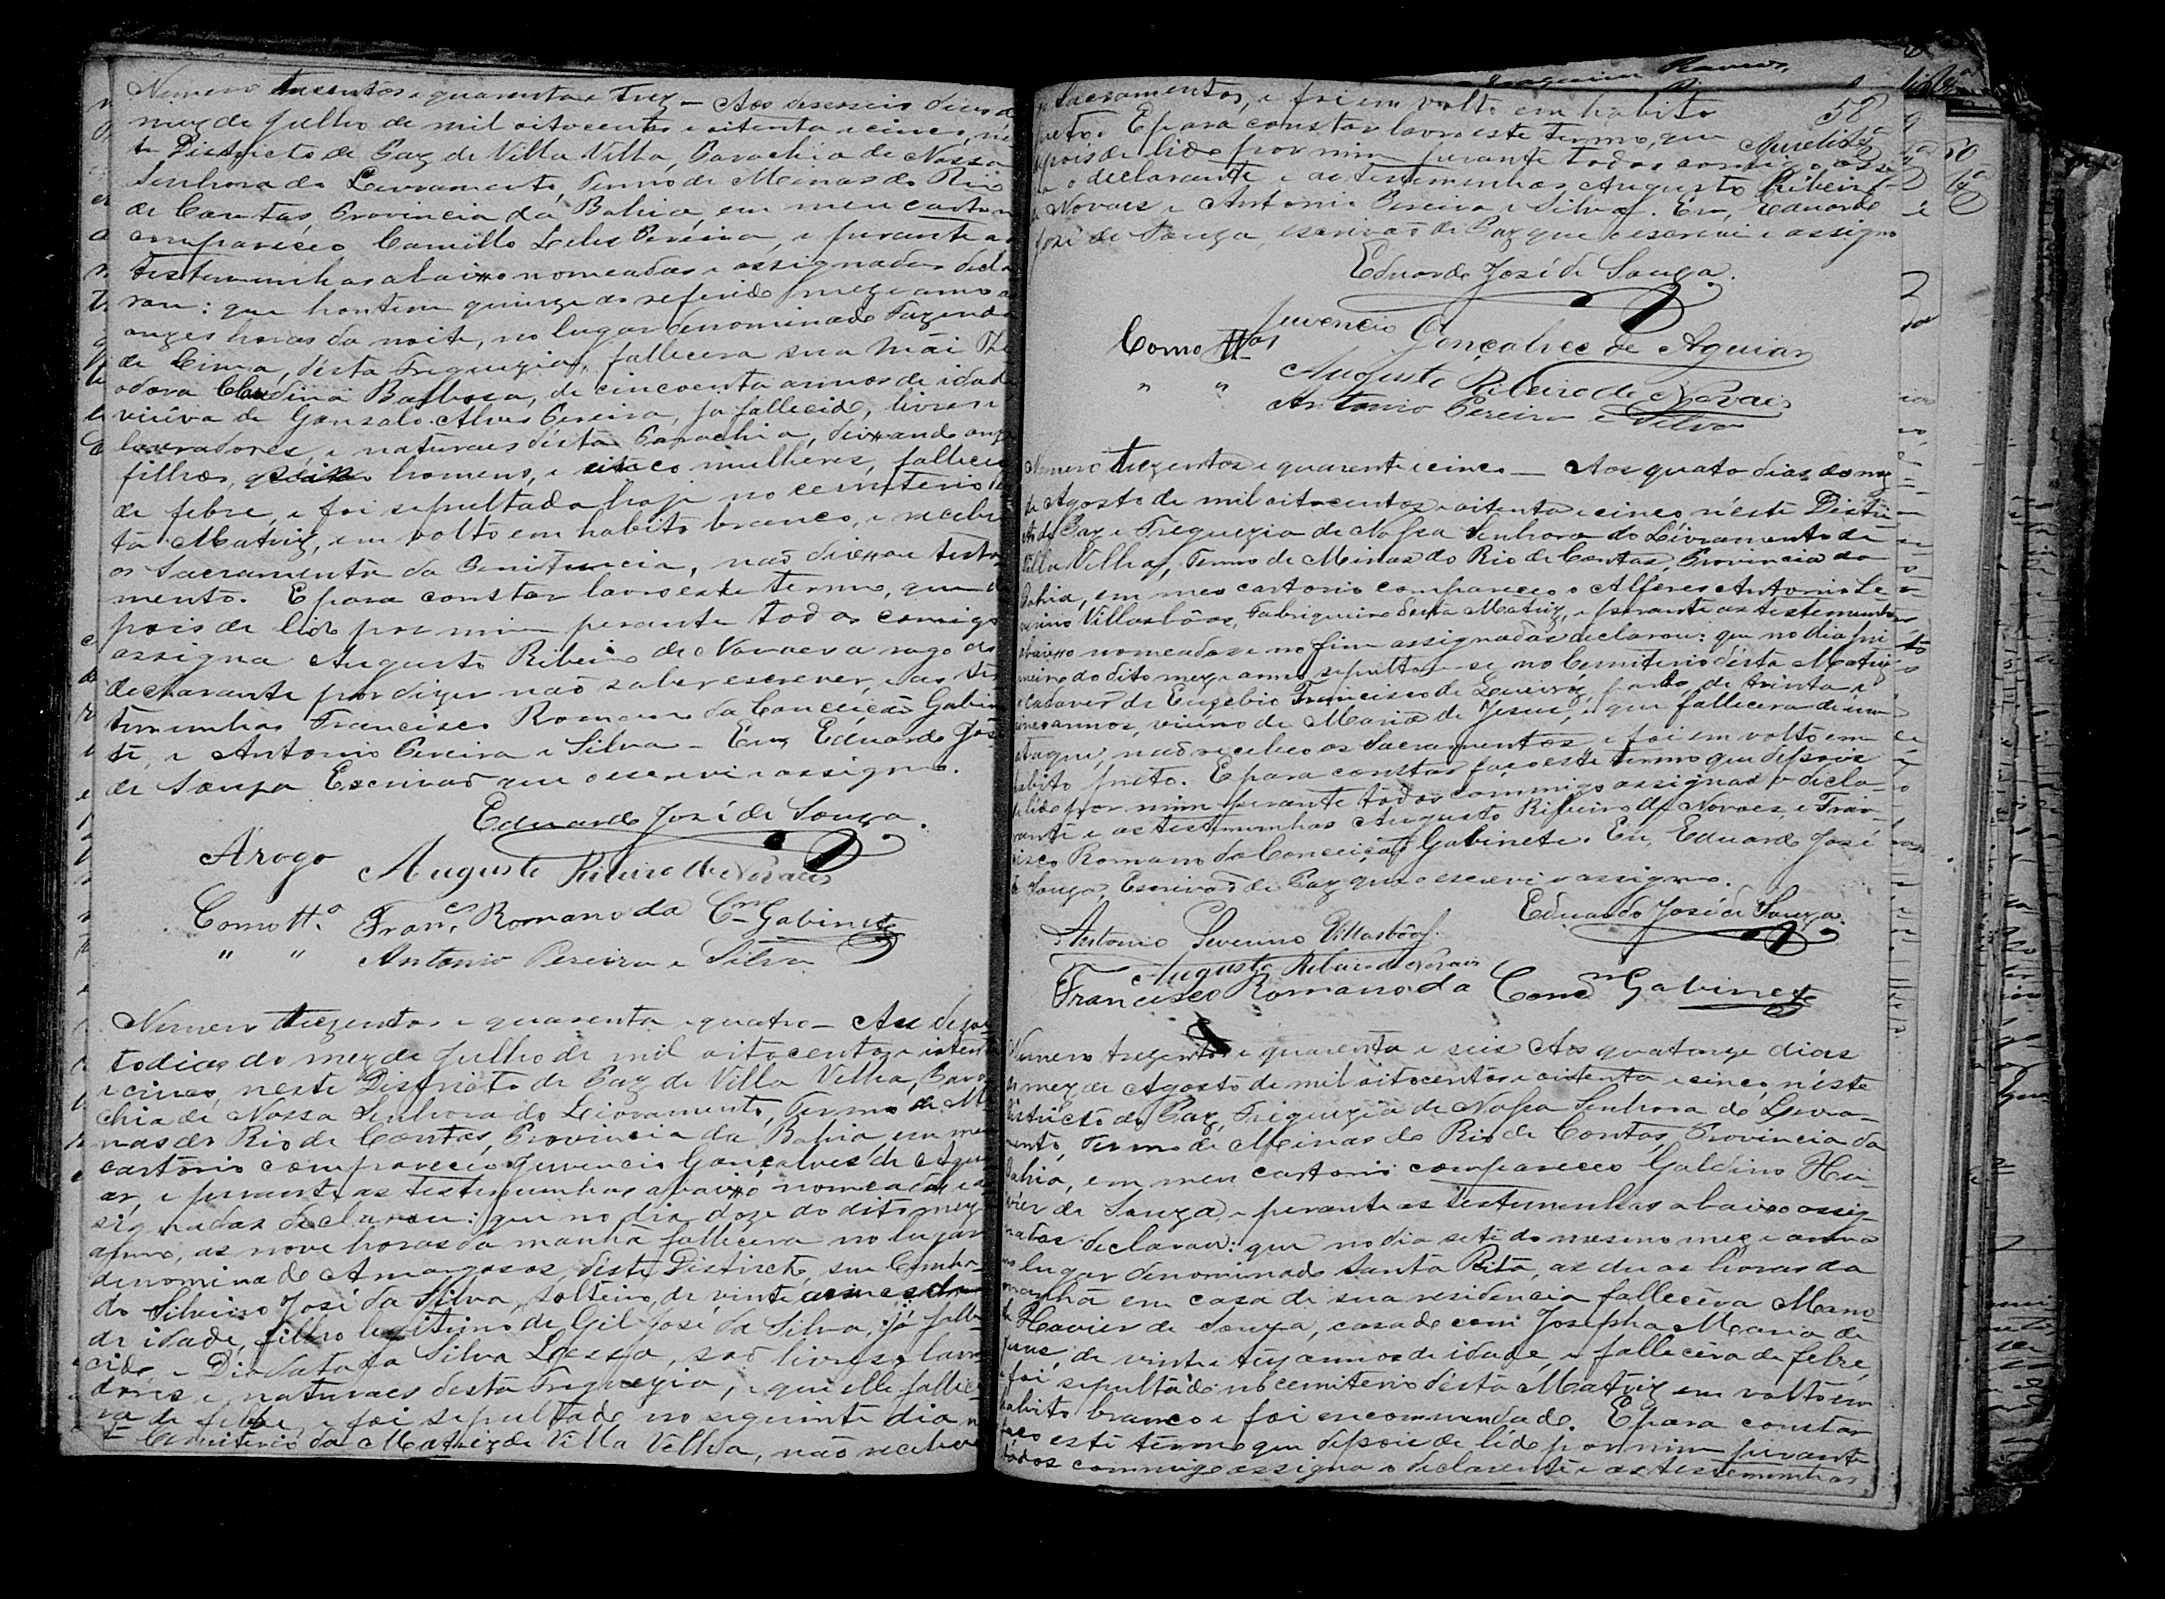 Numero trezentos e quarenta e trez – Aos deseseis dias do
mez de Julho de mil oitocentos e oitenta e cinco, nés
te Districto de Paz de Villa Velha, Parochia de Nossa
Senhora do Livramento, Termo de Minas do Rio
de Contas, Provincia da Bahia, em meu cartorio
compareceo Camillo Leles Pereira, e perante as
testemunhas abaixo nomeadas e assignadas decla
rou: que hontem quinze do referido mez e anno as
onzes horas da noite, no lugar denominado Fazenda
de Cima, désta Freguezia, fallecera sua Mãi The
odora Claudina Barbosa, de cincoenta annos de idade
viúva de Gonsalo Alves Pereira, já fallecido, livres e
lavradores, e naturaes désta Parochia, deixando onze
filhos, homens, e cinco mulheres, falleceo
de febre, e foi sepultada hoje no cemiterio des
ta Matriz, em volto em habito branco, e recebeo
os Sacramento da Penitencia, não dixou testa
mento. E para constar lavro este termo, que de
pois de lido por mim perante todos comigo
assigna Augusto Ribeiro de Novaes a rogo do
declarante por dizer não saber escrever, e as tes
temunhas Francisco Romano da Conceição Gabine
te, e Antonio Pereira e Silva – Eu, Eduardo José
de Souza Escrivão que o escrevi e assigno.
Eduardo José de Souza.
Arogo Augusto Ribeiro de Novaes
Como tta. Franco. Romano da Cm Gabinete
" " Antonio Pereira e Silva
Numero trezentos e quarenta e quatro – Aos dezoi
to dias do mez de Julho de mil oitocentos e oitenta
e cinco, neste Districto de Paz de Villa Velha, Paro
chia de Nossa Senhora do Livramento, Termo de Mi
nas do Rio de Contas, Provincia da Bahia, em meu
cartorio compareceo Juvencio Gonçalves de Agui
ar, e perante as testemunhas abaixo nomeadas e as
signadas declarou: que no dia doze do dito mez e
anno, as nove horas da manhã fallecera no lugar
denominado Amargosas, déste Districto, seu Cunha
do Silvino José da Silva, solteiro, de vinte annos
de idade, filho legitimo de Gil José da Silva, já falle
cido, e Diodata da Silva Lessa, são livres e lavra
dores e naturaes desta Freguezia, e que elle fallece
ra de febre, e foi sepultado no seguinte dia n
o Cemiterio da Matriz de Villa Velha, não recebeo
os Sacramentos, e foi em volto em habito 58
preto. E para constar lavro este termo, que Aurelist
depois de lido por mim perante todos comigo assig
na o declarante e as testemunhas Augusto Ribeiro
de Novaes e Antonio Pereira e Silva. Eu, Eduardo
José de Souza, escrivão de Paz que o escrevi e assigno
Eduardo José de Souza.
Juvencio Gonçalves de Aguiar
Como ttas Augusto Ribeiro de Novaes
" " Antonio Pereira e Silva
Numero trezentos e quarenta e cinco – Aos quato dias do mez
de Agosto de mil oitocentos e oitenta e cinco néste Distri
cto de Paz e Freguezia de Nossa Senhora do Livramento de
Villa Velha, Termo de Minas do Rio de Contas, Provincia da
Bahia, em meu cartorio compareceo o Alferes Antonio Se
verino Villasbôas, Fabriqueiro desta Matriz, e perante as testemunhas
abaixo nomeadas e no fim assignadas declarou: que no dia pri
meiro do dito mez e anno sepultou-se no Cemiterio désta Matriz
o cadaver de Euzebio Francisco de Queiróz, pardo, de trinta e
cinco annos, viúvo de Maria de Jesus, e que fallecera de um
ataque, não recebeo os Sacramentos e foi em volto em
habito preto. E para constar faço este termo que depois
de lido por mim perante todos commigo assignão o decla-
rante e as testemunhas Augusto Ribeiro de Novaes, e Fran-
cisco Romano da Conceição Gabinete. Eu, Eduardo José
de Souza, Escrivão de Paz que o escrevi e assigno.
Eduardo José de Souza.
Antonio Severino Villasbôas.
Augusto Ribeiro de Novaes
Francisco Romano da Concm Gabinete
Numero trezentos e quarenta e seis Aos quatorze dias
do mez de Agosto de mil oitocentos e oitenta e cinco, néste
Districto de Paz, Freguezia de Nossa Senhora do Livra-
mento, Termo de Minas do Rio de Contas, Provincia da
Bahia, em meu cartorio compareceo Galdino Ha-
vier de Souza, e perante as testemunhas abaixo assig-
nadas declarou: que no dia sete do mesmo mez e anno
no lugar denominado Santa Rita, as duas horas da
manhã em casa de sua residencia fallecêra Mano-
el Havier de Souza, casado com Josepha Maria de
Jesus, de vinte e trez annos de idade, e fallecêra de febre,
e foi sepultado no cemiterio désta Matriz em volto em
habito branco e foi encommendado. E para constar
faço este termo que depois de lido por mim perante
todos commigo assigna o declarante e as testemunhas